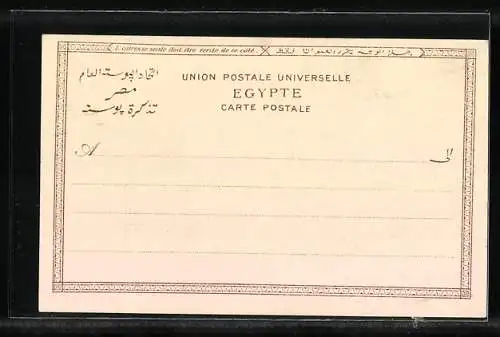 L'adresse seule doit être écrite de ce côté
UNION POSTALE UNIVERSELLE
EGYPTE
CARTE POSTALE
اتحاد البوستة العام
مصر
تذكرة بوسته
A
الى